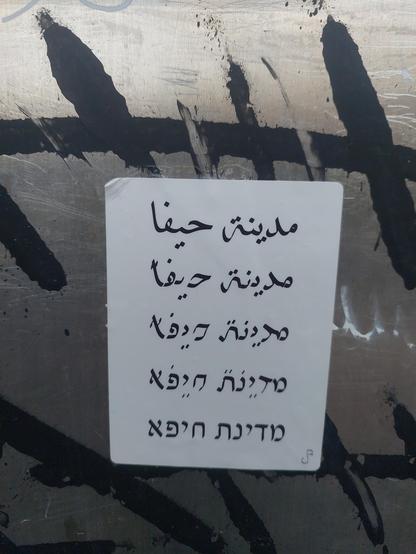 مدينة حيفا
مدينة حيفا
מדינת חיפא
מדינת חיפא